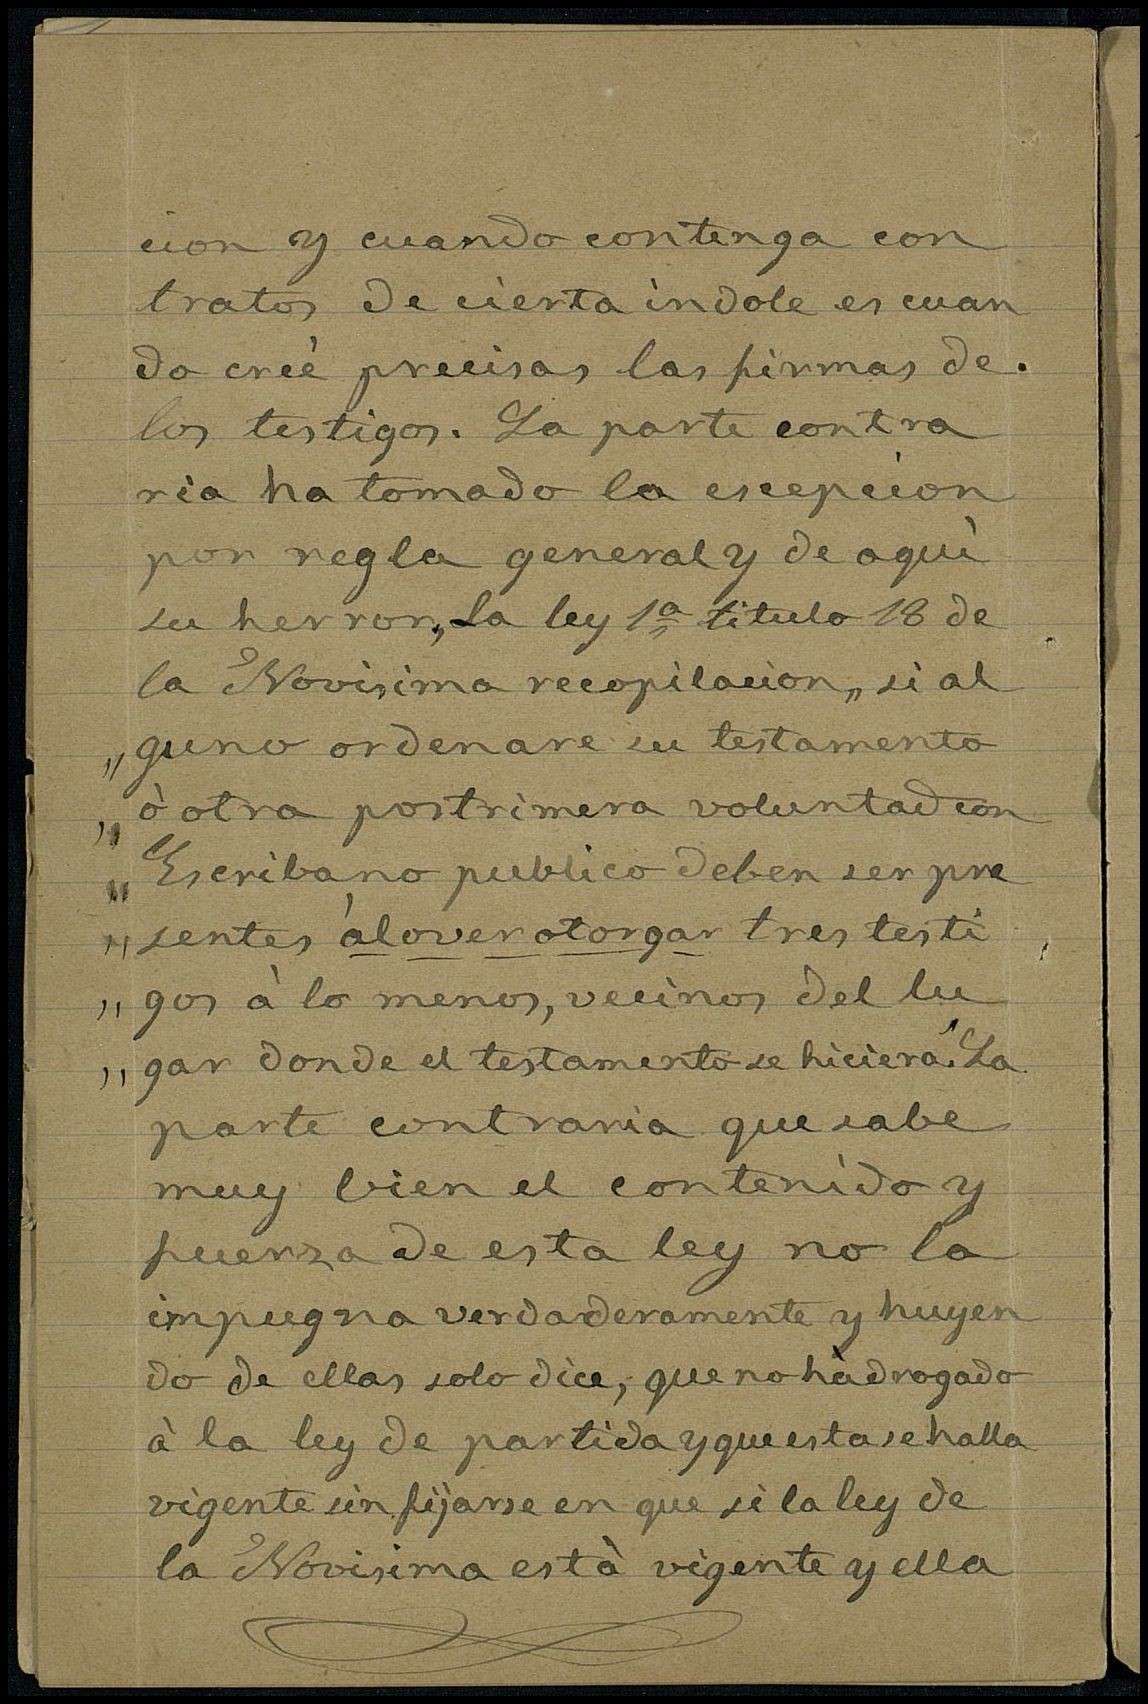 cion y cuando contenga con
tratos de cierta indole es cuan
do creé precisas las firmas de.
los testigos. La parte contra
ria ha tomado la escepcion
por regla general y de aqui
su herror, La ley 1ª titulo 18 de
la Novisima recopilacion „ si al
„ guno ordenare su testamento
„ ò otra postrimera voluntad con
„ Escribano publico deben ser pre
„ sentes àlover otorgar tres testi
„ gos à lo menos, vecinos del lu
„ gar donde el testamento se hiciera". La
parte contraria que sabe
muy bien el contenido y
fuerza de esta ley no la
impugna verdaderamente y huyen
do de ellas solo dice, que no hà drogado
à la ley de partida y que esta se halla
vigente sin fijarse en que si la ley de
la Novisima està vigente y ella